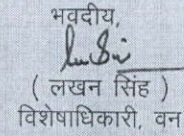 भवदीय,
( लखन सिंह )
विशेषाधिकारी, वन